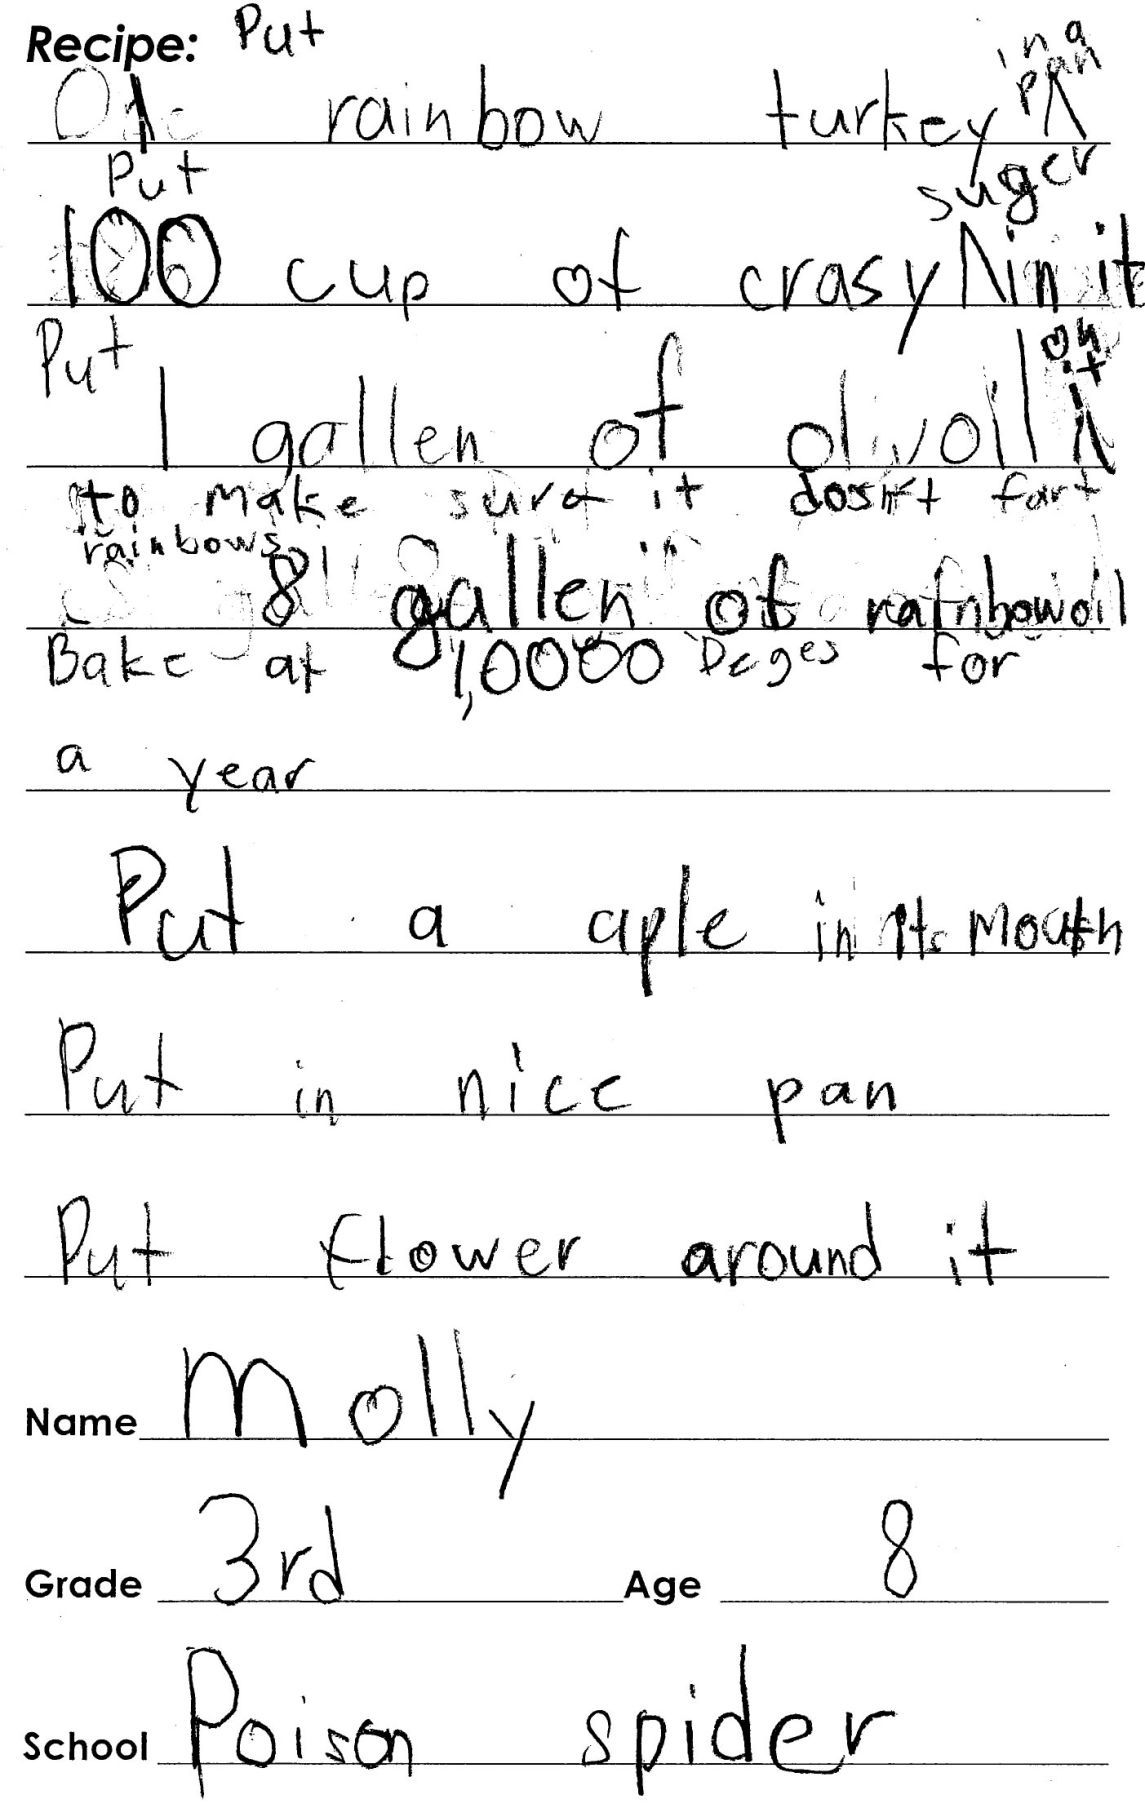 Recipe: Put
One rainbow turkey in a pan
Put
100 cup of crasy suger in it
Put
1 gallen of olivoil on it
to make sure it dosint fart
rainbows
8 gallen of rainbowoil
Bake at 1,0000 Deges for
a year
Put a aple in its Mouth
Put in nice pan
Put flower around it
Name Molly
Grade 3rd Age 8
School Poison spider